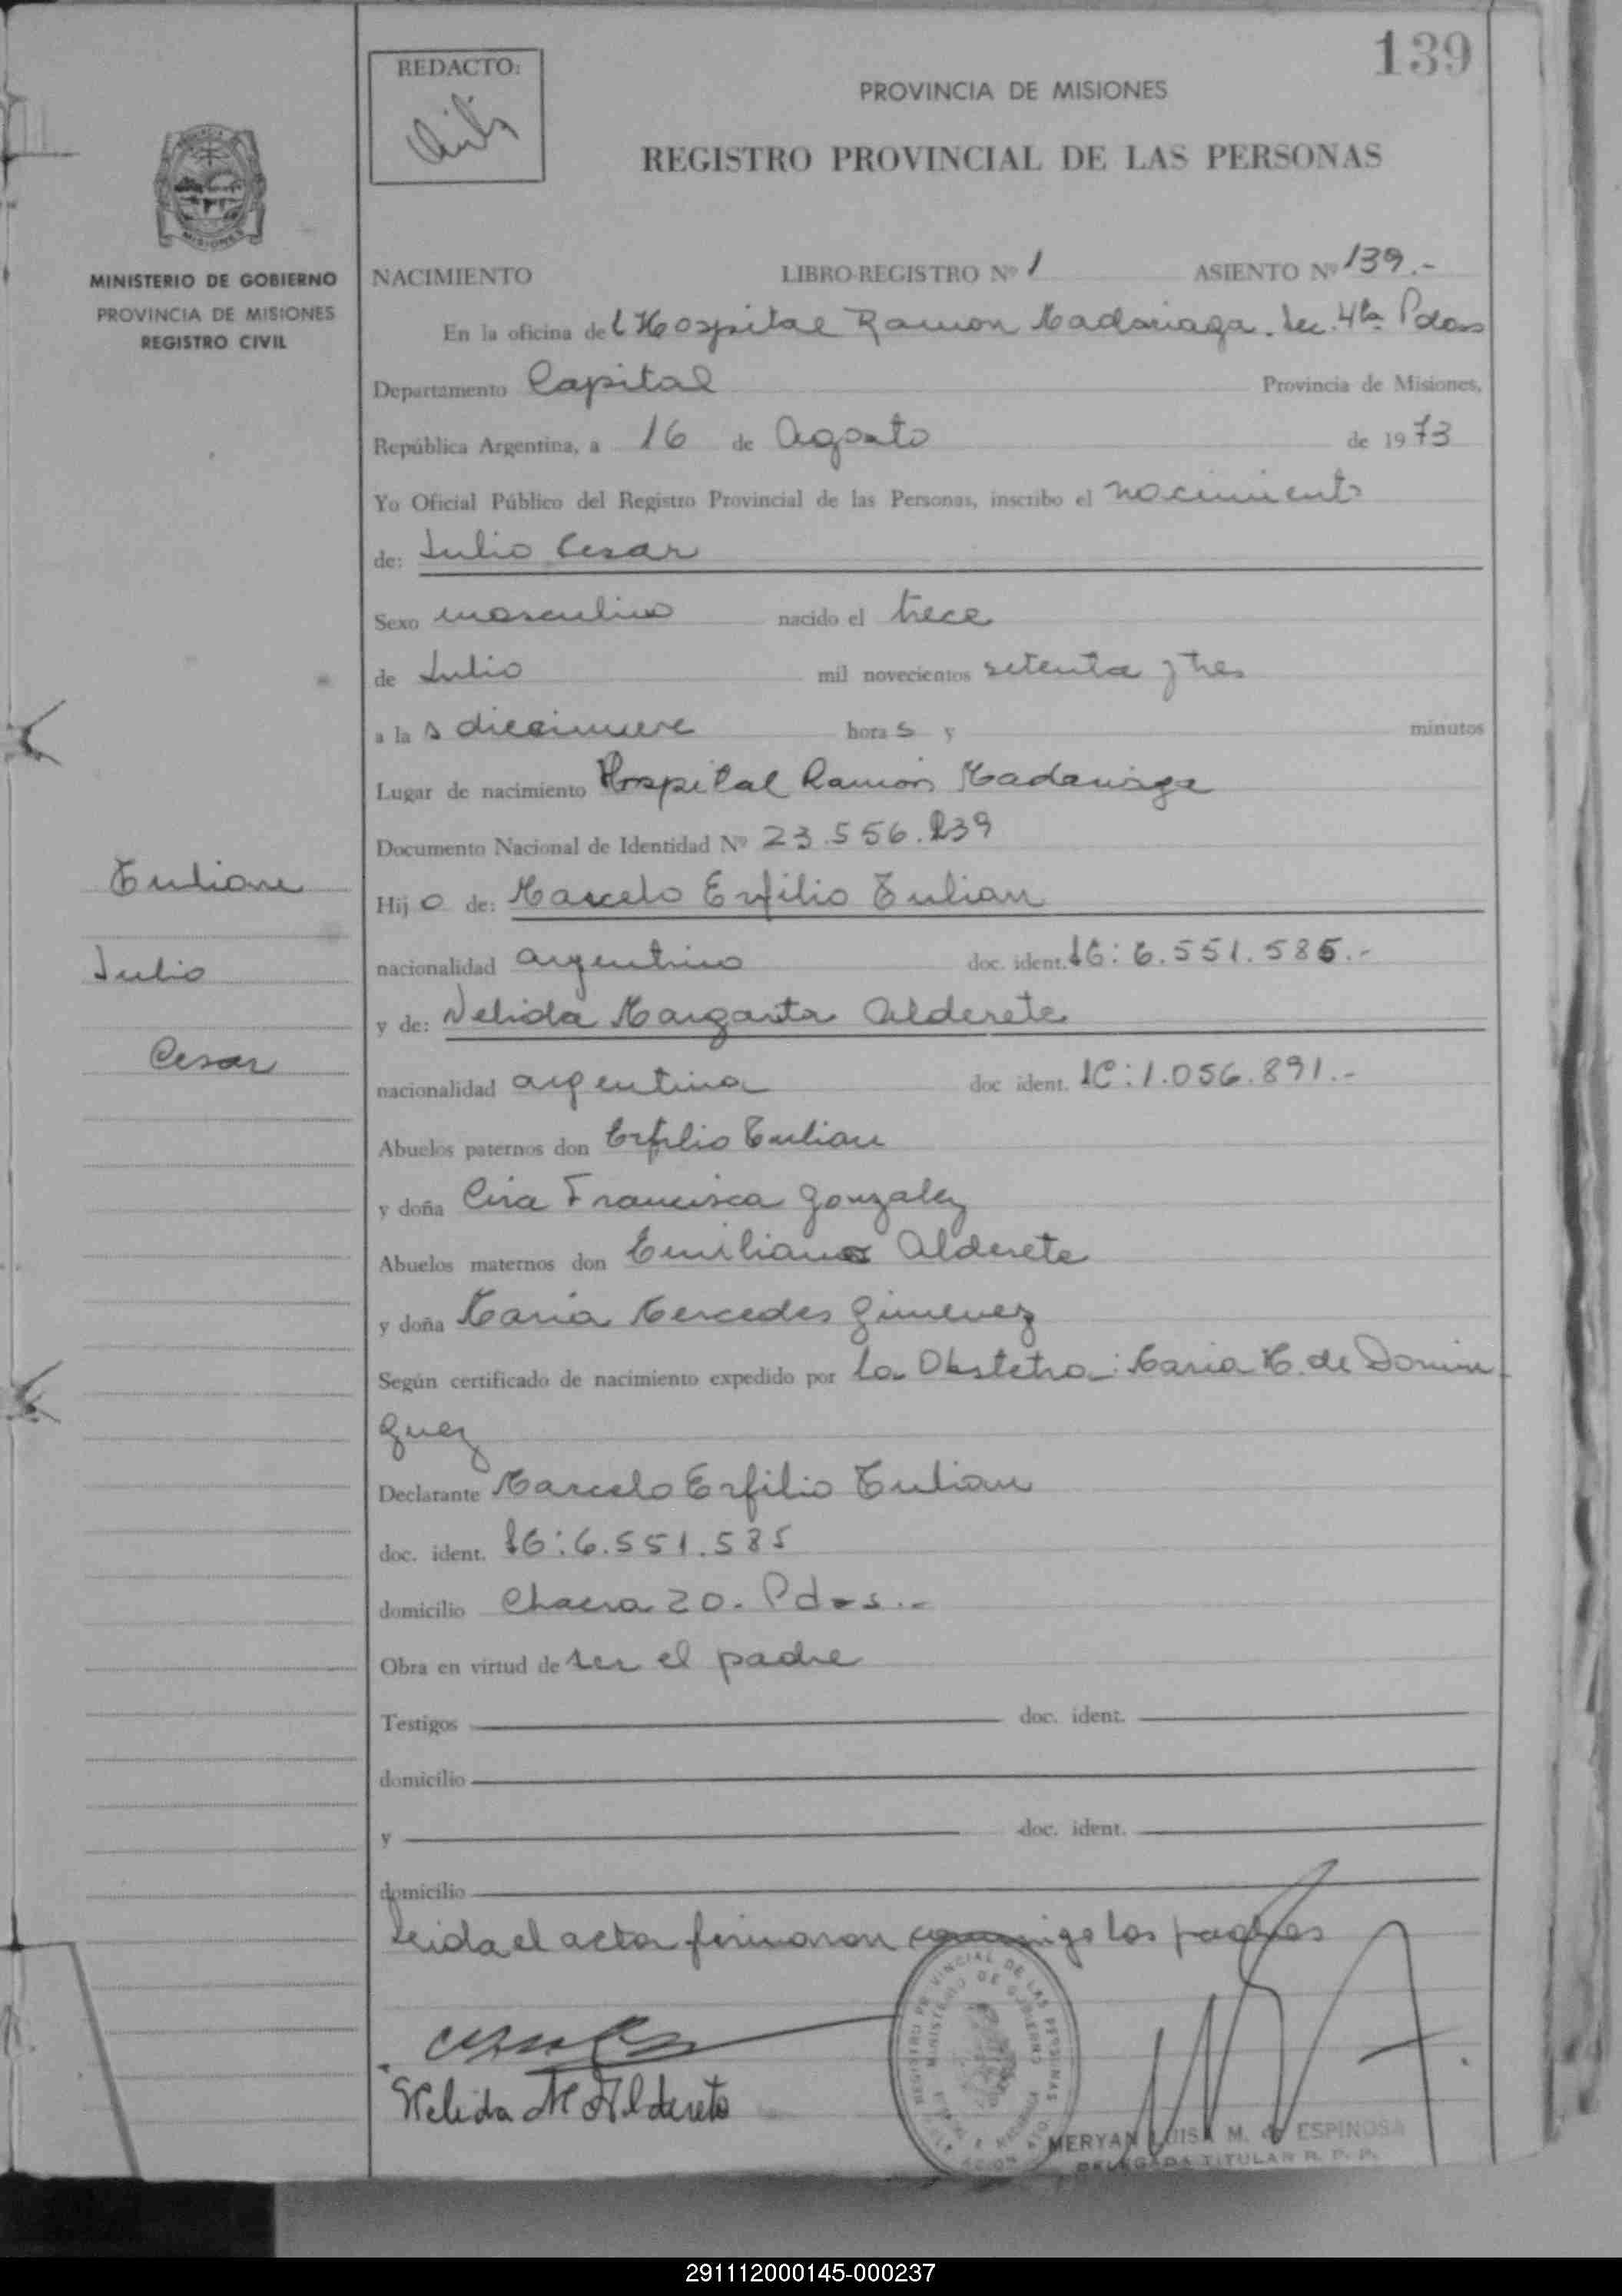 139
REDACTO:
PROVINCIA DE MISIONES
REGISTRO PROVINCIAL DE LAS PERSONAS
MINISTERIO DE GOBIERNO
PROVINCIA DE MISIONES
REGISTRO CIVIL
NACIMIENTO LIBRO-REGISTRO Nº 1 ASIENTO Nº 139.-
En la oficina del Hospital Ramon Madariaga. Sec. 4ta Pdas
Departamento Capital Provincia de Misiones,
República Argentina, a 16 de Agosto de 1973
Yo Oficial Público del Registro Provincial de las Personas, inscribo el nacimiento
de: Julio Cesar
Sexo masculino nacido el trece
de Julio mil novecientos setenta y tres
a las diecinueve horas y minutos
Lugar de nacimiento Hospital Ramon Madariaga
Documento Nacional de Identidad Nº 23.556.239
Tulian
Hijo de: Marcelo Erfilio Tulian
Julio
nacionalidad argentino doc. ident. LE: 6.551.585.-
y de: Nelida Margarita Alderete
Cesar
nacionalidad argentina doc ident. LC: 1.056.891.-
Abuelos paternos don Erfilio Tulian
y doña Cira Francisca Gonzalez
Abuelos maternos don Emiliano Alderete
y doña Maria Mercedes Gimenez
Según certificado de nacimiento expedido por la Obstetra: Maria M. de Domin
guez
Declarante Marcelo Erfilio Tulian
doc. ident. LE: 6.551.585
domicilio Chacra 20. Pdas.-
Obra en virtud de ser el padre
Testigos doc. ident.
domicilio
y doc. ident.
domicilio
Leida el acta firmaron conmigo los padres
Nelida M Alderete
REGISTRO PROVINCIAL DE LAS PERSONAS
MINISTERIO DE GOBIERNO
MERYAN LUISA M. de ESPINOSA
DELEGADA TITULAR R. P. P.
291112000145-000237